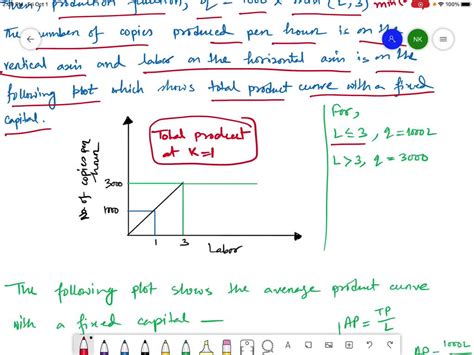 production function, q = 1000 × min (L, 3)
The number of copies produced per hour is on the
vertical axis and labor on the horizontal axis is on the
following plot which shows total product curve with a fixed
capital.
NK
For,
L ≤ 3, q = 1000L
L > 3, q = 3000
Total product
at K=1
no. of copies per
hour
3000
1000
1
3
Labor
The following plot shows the average product curve
with a fixed capital —
AP = TP/L
AP = 1000L